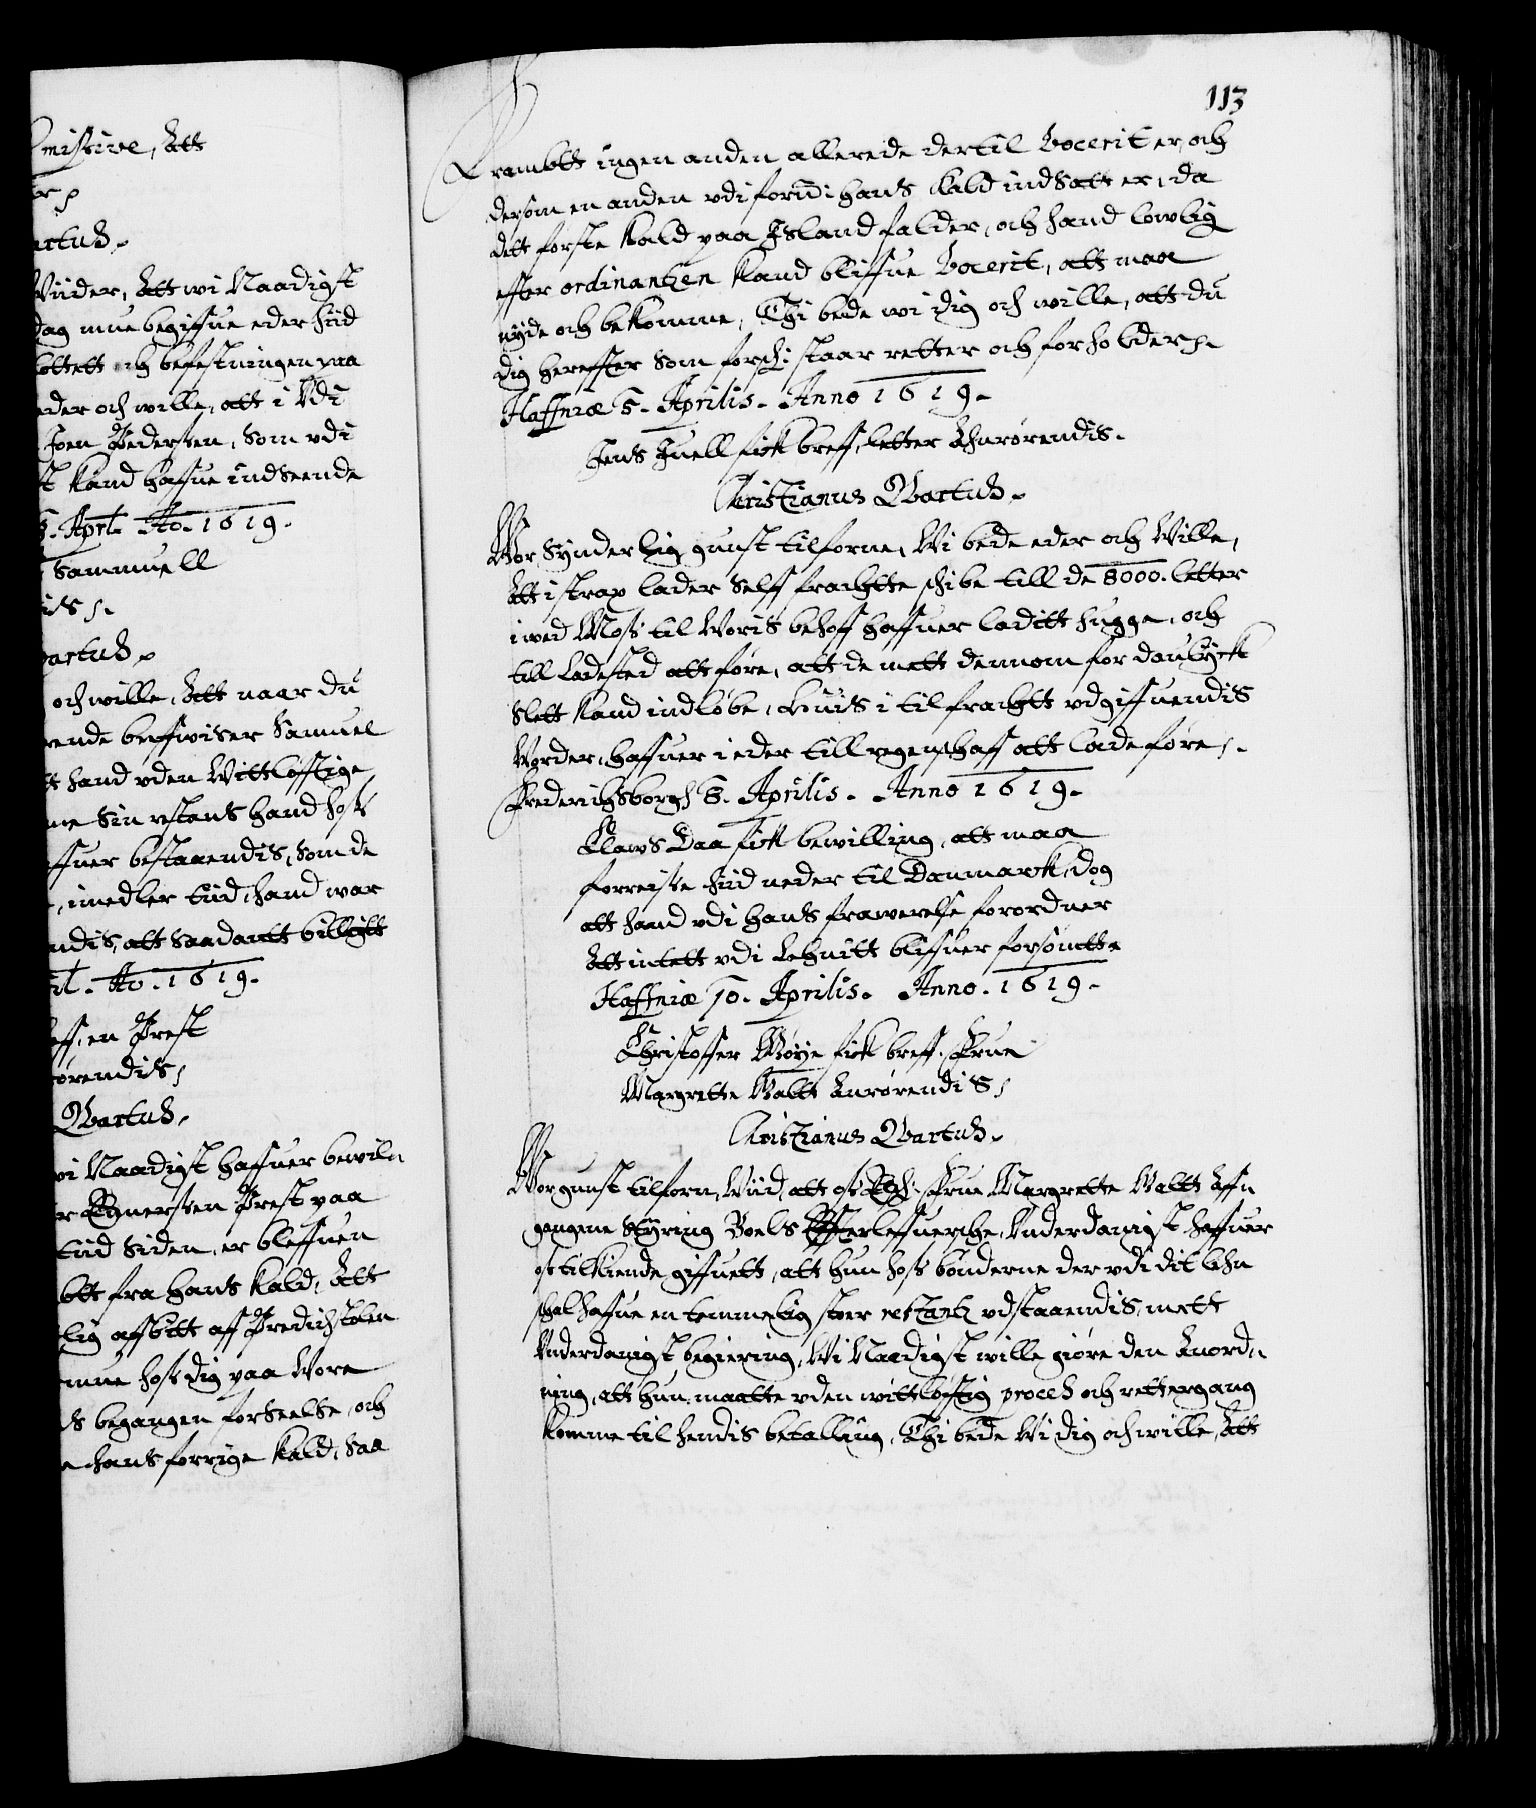 missive, Att
Wiider, Att wi Naadigst
dag mue begiffue eder hiid
och befestningen paa
eder och wille, att i Vdi
Joen Pedersen, Som vdi
Kand haffue indseende
Aprl. Ao. 1619.
Sammuell
och wille, Att naar du
beuiser Samuel
hand vden Wittløfftige
Sin restans hand hoss
bestaaendis, Som de
imedler tiid, hand war
att saadant billigtt
Ao. 1619.
en Prest
Qvartus.
wi Naadigst haffuer bewil=
Prest paa
tiid Siden, er bleffuen
fra hans Kald, Att
aff Predichstolen
hoss dig paa Wore
begangen forseelse, och
hans forrige Kald, Saa
113
Frambtt ingen anden allerede dertil Vocerit er, och
dersom en anden vdi forne: hans Kald indsatt er, da
dett første Kald paa Island falder, och hand lowlig
effter ordinantzen Kand bliffue Vocerit, att maa
nyde och bekomme, Thi bede wi dig och wille, att du
dig hereffter Som forsch: staar retter och forholder.
Haffniæ 5. Aprilis. Anno 1619.
Jens Juell fick breff, letter Anrørendis.
Christianus Qvartus.
Wor Synderlig gunst tilforne, Wi bede eder och Wille,
Att i strax lader Self frachtte schibe till de 8000. letter
i wed Moss til Woris behoff haffuer laditt hugge, och
till Ladested att føre, att de mett dennom for
Slett Kand indløbe, Huis i til frachtt vdgiffuendis
Worder, haffuer i eder till regenschaff att lade føre.
Frederichsborgh 8. Aprilis. Anno 1619.
Claws Daa fick bewilling, att maa
forreise hiid neder til Danmarck, dog
att hand vdi hans frawerelse forordner
Att intett vdi Lehnitt bliffuer forsømtt
Haffniæ 10. Aprilis. Anno. 1619.
Christoffer Gøye fick breff. Frue
Margrette Galtt Anrørendis
Christianus Qvartus.
Wor gunst tilforn, Wiid, att oss Elsch: Frue Margrette Galtt Aff=
gangene Styring Boels Effterleffuersche, Vnderdanigst haffuer
oss tilkiende giffuett, att hun hoss bønderne der vdi dit lehn
schal haffue en temmelig stoer restantz vdstaaendis, mett
Vnderdanigst begiering, Wi Naadigst wille giøre den Anord=
ning, att hun maatte vden wittløfftig process och rettergang
Komme til hendis betalling, Thi bede Wi dig och wille, Att